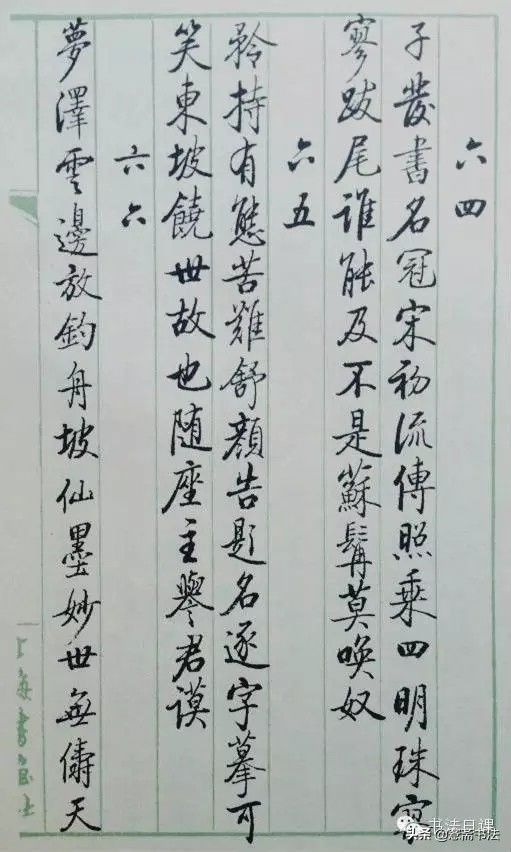 六四
子發書名冠宋初流傳照乘四明珠寂
寥跋尾誰能及不是蘇髯莫喚奴
六五
矜持有態苦難舒顏告題名逐字摹可
笑東坡饒世故也隨座主譽君謨
六六
夢澤雲邊放釣舟坡仙墨妙世無儔天
上海書
书法日课
头条